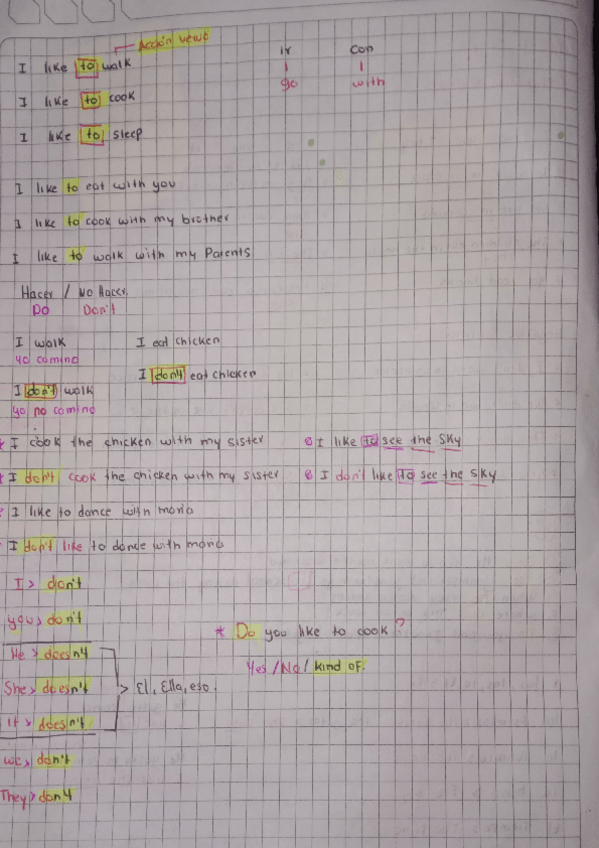 Acción verbo
I like to walk
ir con
go with
I like to cook
I like to sleep
I like to eat with you
I like to cook with my brother
I like to walk with my Parents
Hacer / No Hacer.
Do Don't
I walk I eat chicken
yo camino
I don't eat chicken
I don't walk
yo no camino
* I cook the chicken with my sister
I like to see the sky
* I don't cook the chicken with my sister
I don't like to see the sky
I like to dance with maria
I don't like to dance with maria
I > don't
you > don't
* Do you like to cook?
He > doesn't
Yes / No / kind of.
She > doesn't > El, Ella, eso.
It > doesn't
we > don't
They > don't